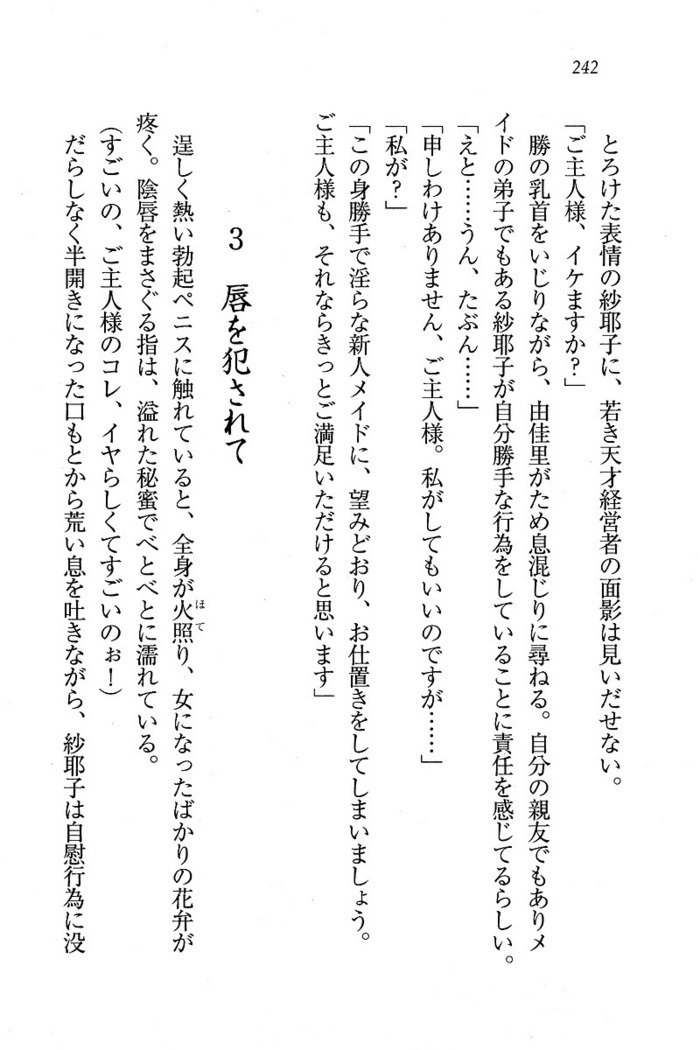 242
とろけた表情の紗耶子に、若き天才経営者の面影は見いだせない。
「ご主人様、イケますか?」
勝の乳首をいじりながら、由佳里がため息混じりに尋ねる。自分の親友でもありメ
イドの弟子でもある紗耶子が自分勝手な行為をしていることに責任を感じてるらしい。
「えと……うん、たぶん……」
「申しわけありません、ご主人様。私がしてもいいのですが……」
「私が?」
「この身勝手で淫らな新人メイドに、望みどおり、お仕置きをしてしまいましょう。
ご主人様も、それならきっとご満足いただけると思います」
3 唇を犯されて
逞しく熱い勃起ペニスに触れていると、全身が火照り、女になったばかりの花弁が
ほて
疼く。陰唇をまさぐる指は、溢れた秘蜜でべとべとに濡れている。
(すごいの、ご主人様のコレ、イヤらしくてすごいのぉ!)
だらしなく半開きになった口もとから荒い息を吐きながら、紗耶子は自慰行為に没